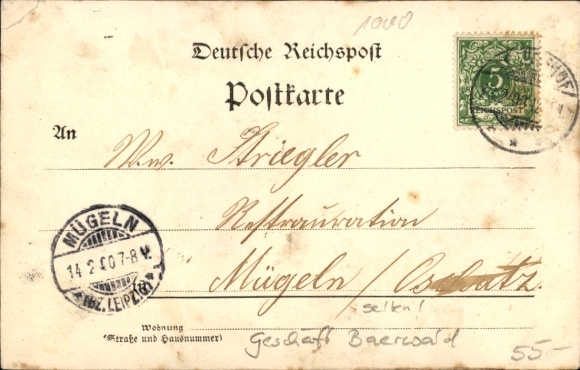 1000
Deutsche Reichspost
Postkarte
5
REICHSPOST
An
Ww. Striegler
Restauration
MÜGELN
14.2.00.7-8 V.
(BZ. LEIPZIG)
Mügeln / Oschatz.
selten!
Wohnung
(Straße und Hausnummer)
Geschäft Baerwald
55.-